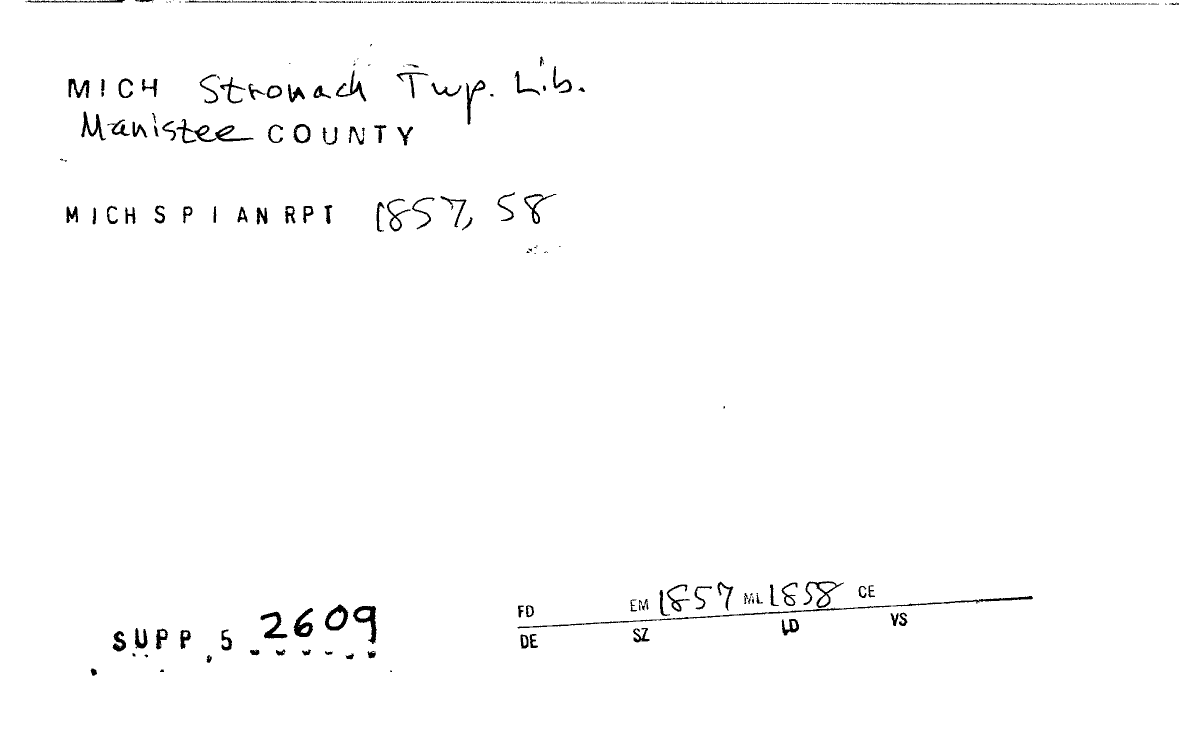 MICH Stronach Twp. Lib.
Manistee COUNTY
MICH S P I AN RPT 1857, 58
SUPP, 5 2609
FD EM 1857 ML 1858 CE
DE SZ LD VS